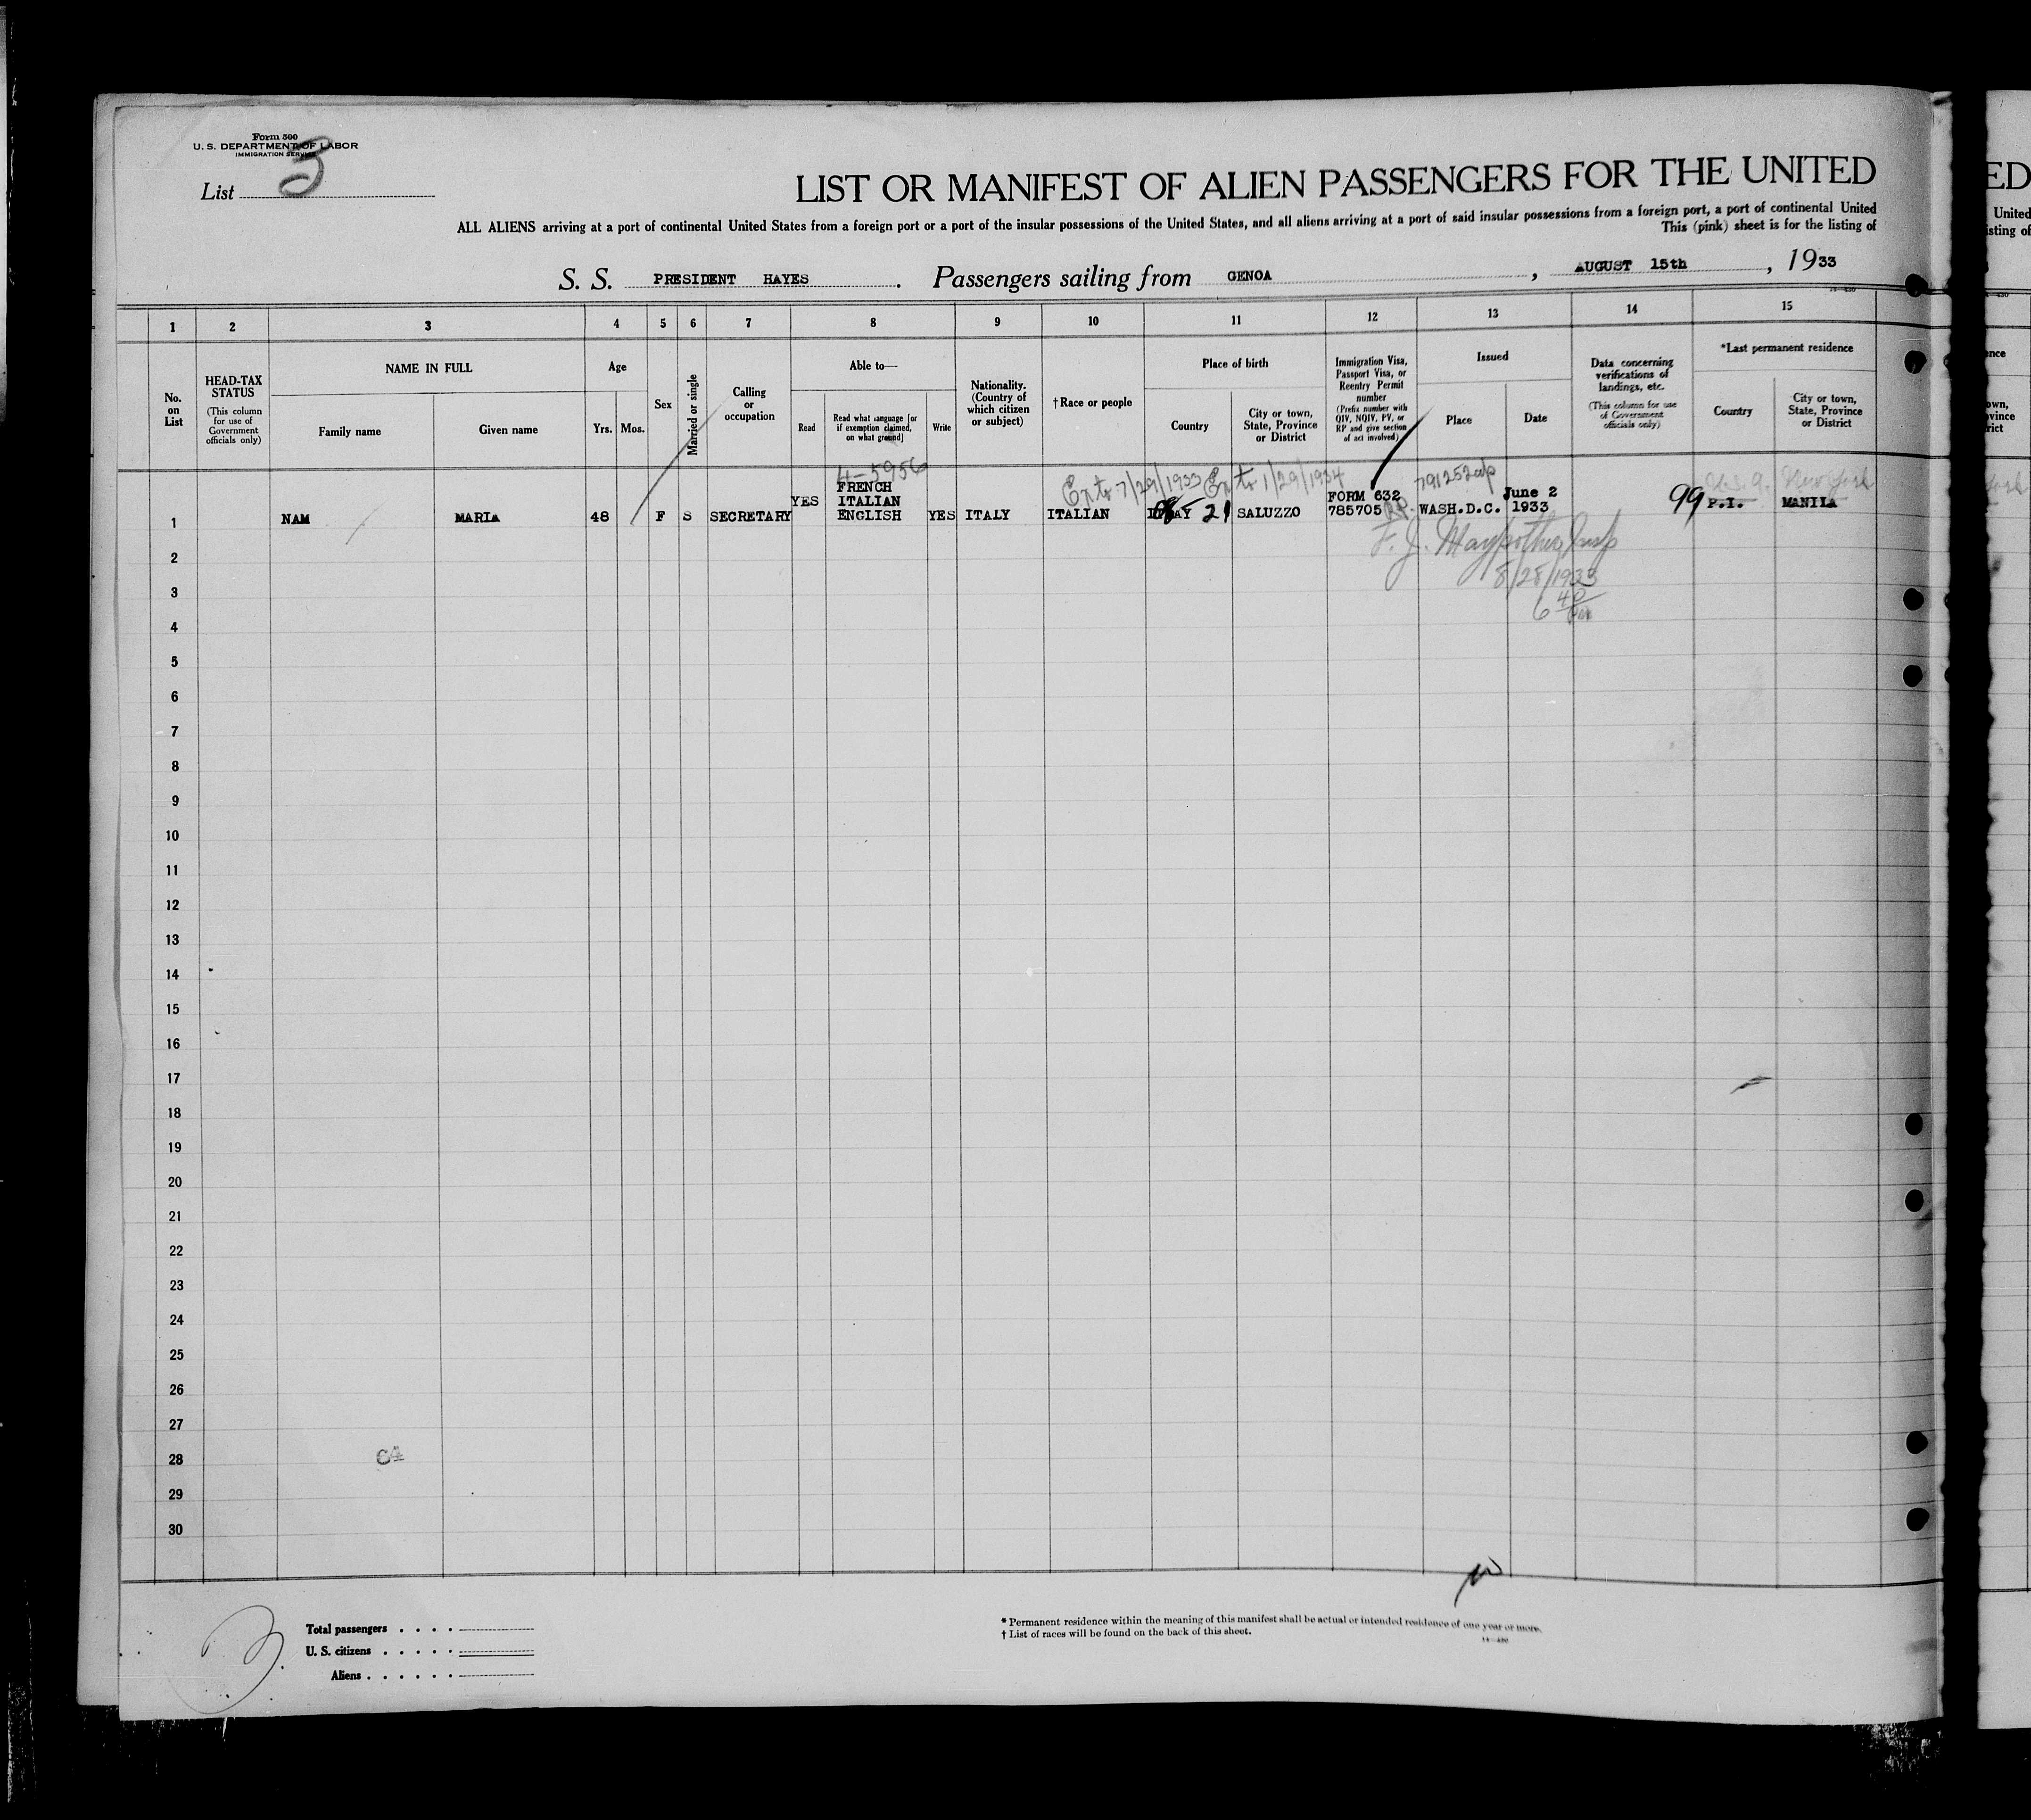 Form 500
U. S. DEPARTMENT OF LABOR
IMMIGRATION SERVICE
List 3
LIST OR MANIFEST OF ALIEN PASSENGERS FOR THE UNITED
ALL ALIENS arriving at a port of continental United States from a foreign port or a port of the insular possessions of the United States, and all aliens arriving at a port of said insular possessions from a foreign port, a port of continental United
This (pink) sheet is for the listing of
S. S. PRESIDENT HAYES. Passengers sailing from GENOA, AUGUST 15th, 1933
1 2 3 4 5 6 7 8 9 10 11 12 13 14 15
No. on List
HEAD-TAX STATUS
(This column for use of Government officials only)
NAME IN FULL
Family name
Given name
Age
Yrs. Mos.
Sex
Married or single
Calling or occupation
Able to—
Read
Read what language [or if exemption claimed, on what ground]
Write
Nationality. (Country of which citizen or subject)
†Race or people
Place of birth
Country
City or town, State, Province or District
Immigration Visa, Passport Visa, or Reentry Permit number
(Prefix number with QIV, NQIV, PV, or RP and give section of act involved)
Issued
Place
Date
Data concerning verifications of landings, etc.
(This column for use of Government officials only)
*Last permanent residence
Country
City or town, State, Province or District
4-5956
Ex to 7/29/1933 Ex to 1/29/1934
791252
U.S.A. New York
1 NAM MARIA 48 F S SECRETARY YES FRENCH ITALIAN ENGLISH YES ITALY ITALIAN ITALY 21 SALUZZO FORM 632 785705 RP WASH.D.C. June 2 1933 99 P.I. MANILA
F. J. Insp
8/28/1933
6 40 pm
2
3
4
5
6
7
8
9
10
11
12
13
14
15
16
17
18
19
20
21
22
23
24
25
26
27
28
29
30
Total passengers . . . .
U. S. citizens . . . . .
Aliens . . . . . .
* Permanent residence within the meaning of this manifest shall be actual or intended residence of one year or more.
† List of races will be found on the back of this sheet.